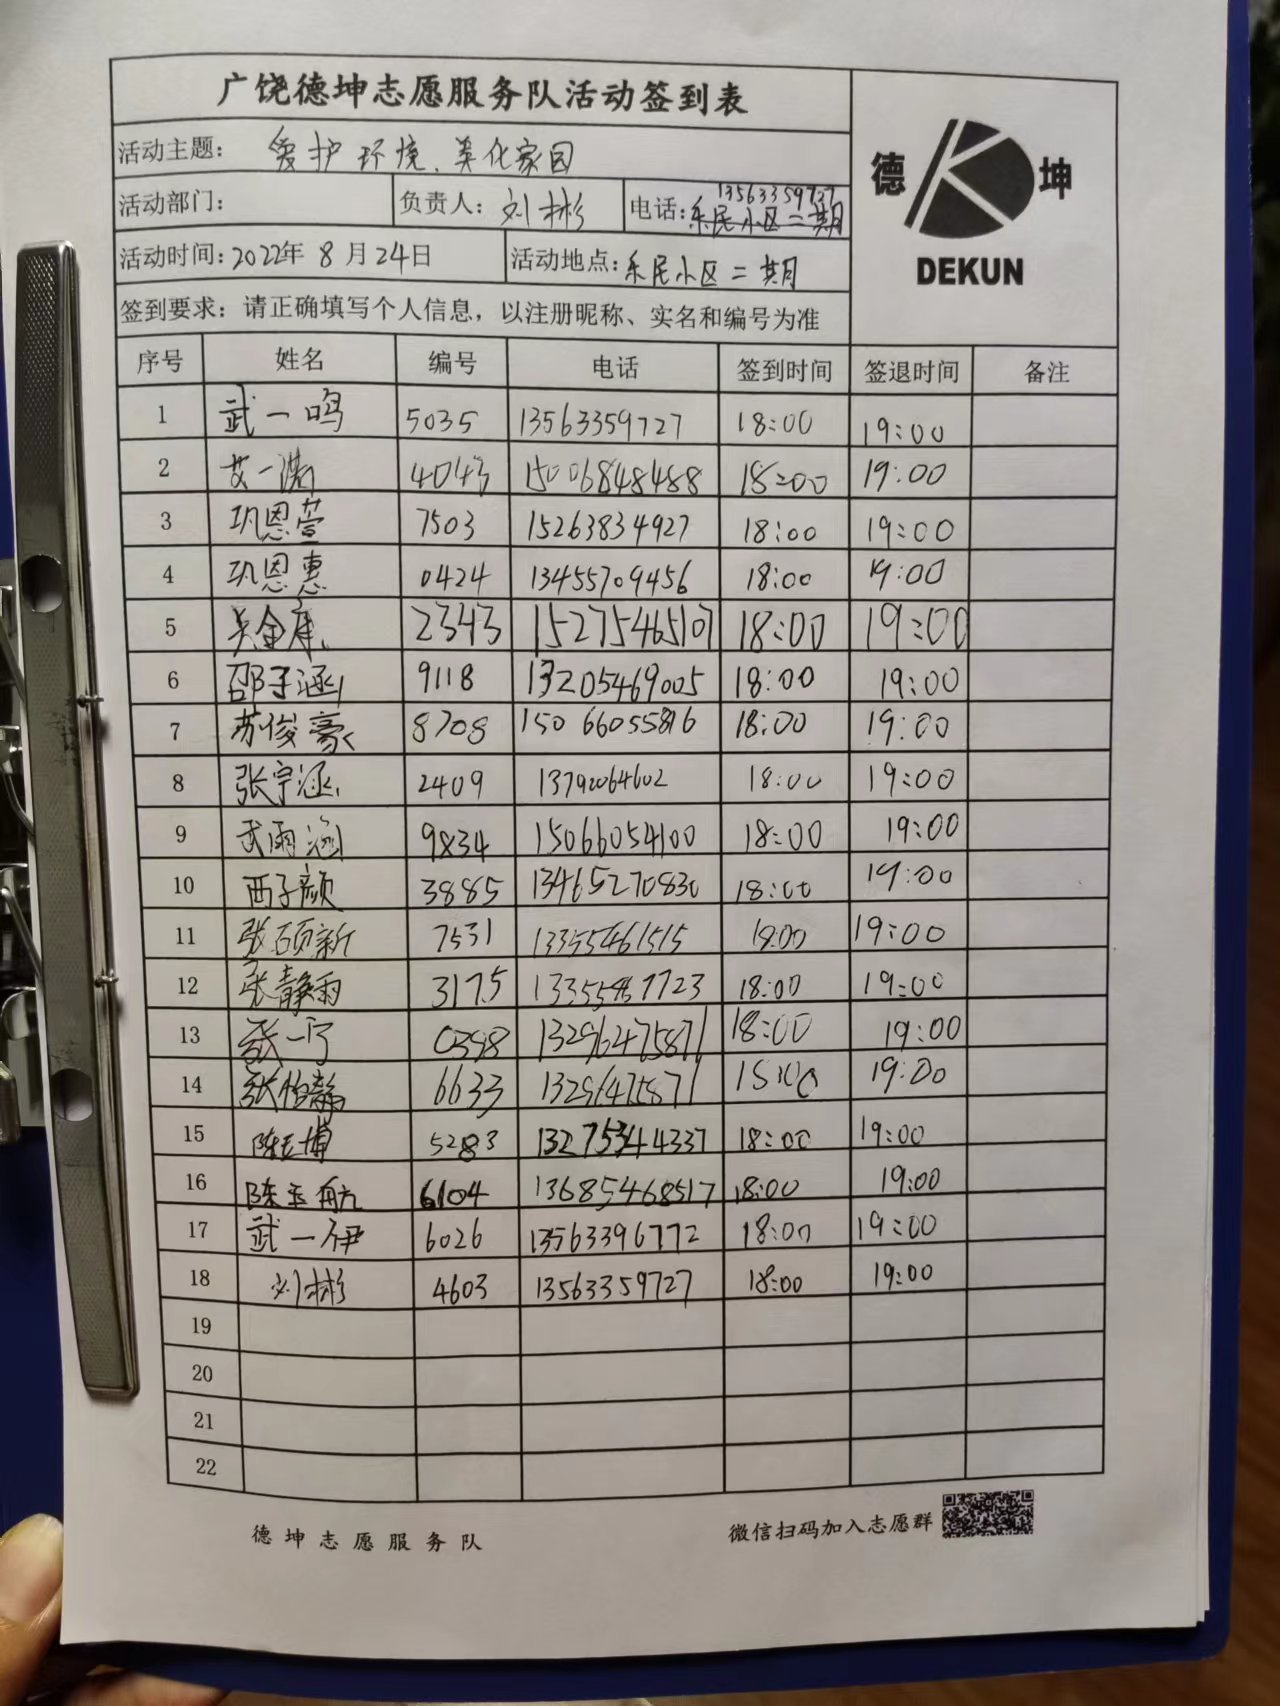 广饶德坤志愿服务队活动签到表
德 坤
DEKUN
活动主题: 爱护环境、美化家园
活动部门: 负责人: 刘彬 电话: 13563359727
乐民小区二期
活动时间: 2022年8月24日 活动地点: 乐民小区二期
签到要求: 请正确填写个人信息, 以注册昵称、实名和编号为准
序号 姓名 编号 电话 签到时间 签退时间 备注
1 武一鸣 5035 13563359727 18:00 19:00
2 艾一 4043 15006848488 18:00 19:00
3 巩恩萱 7503 15263834927 18:00 19:00
4 巩恩惠 0424 13455709456 18:00 19:00
5 吴金 2343 15275465107 18:00 19:00
6 邵子涵 9118 13205469005 18:00 19:00
7 苏俊豪 8708 15066055816 18:00 19:00
8 张宇涵 2409 13792064602 18:00 19:00
9 武雨涵 9834 15066054100 18:00 19:00
10 西子颜 3885 13465270830 18:00 19:00
11 张硕新 7531 13355461515 18:00 19:00
12 张静雨 3175 18:00 19:00
13 张一 0398 13296475871 18:00 19:00
14 张怡静 6633 13296475871 19:00
15 陈玉博 5283 13275344337 18:00 19:00
16 陈玉航 6104 13685468517 18:00 19:00
17 武一伊 6026 13563396772 18:00 19:00
18 刘彬 4603 13563359727 18:00 19:00
19
20
21
22
德坤志愿服务队 微信扫码加入志愿群